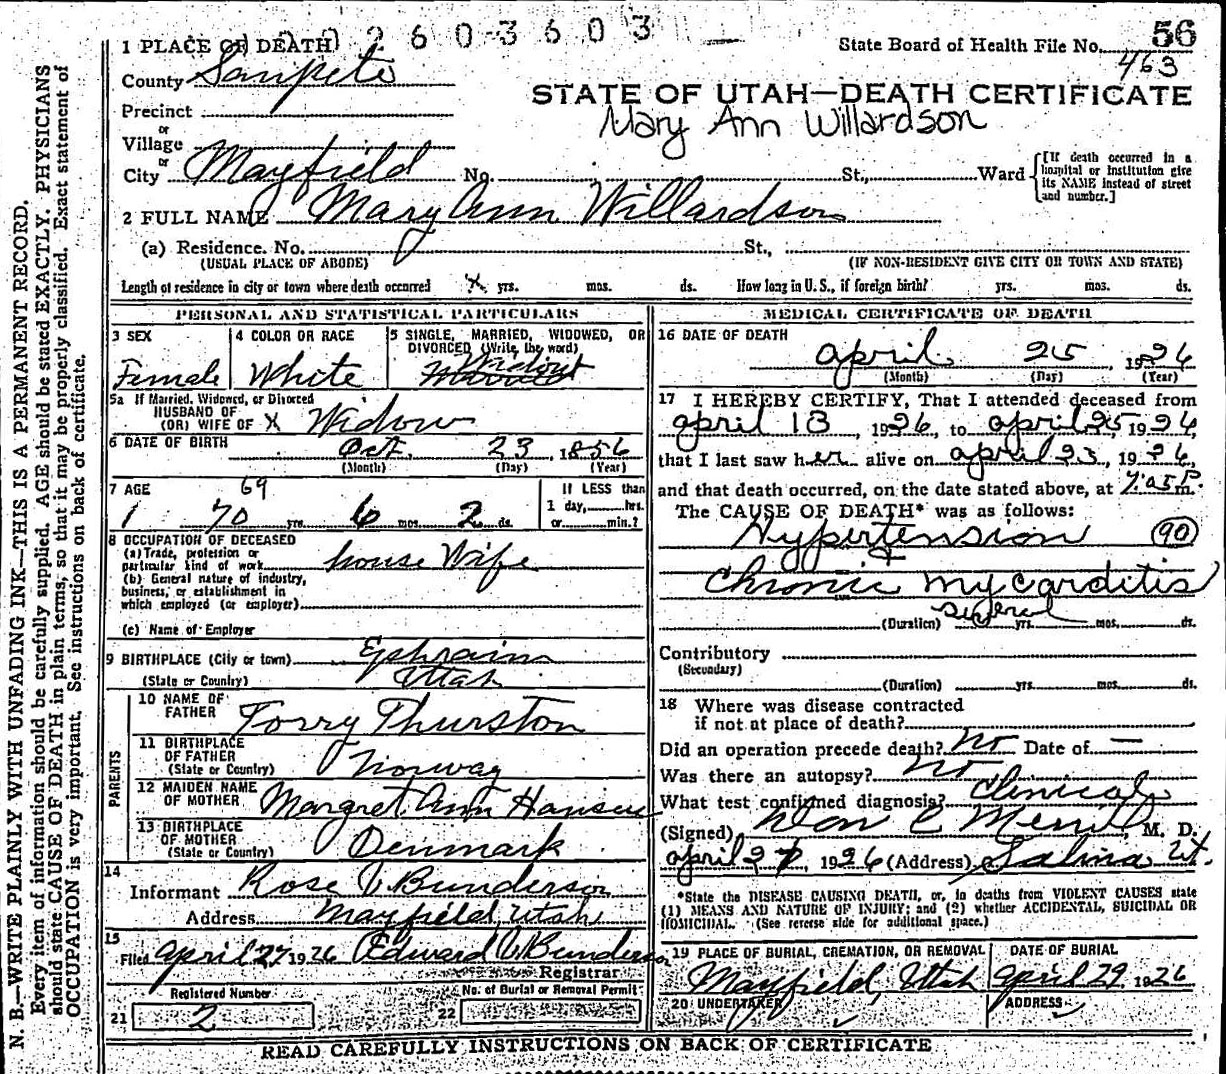 0260-3603
56
1 PLACE OF DEATH
State Board of Health File No.
463
County Sanpete
STATE OF UTAH—DEATH CERTIFICATE
Mary Ann Willardson
Precinct
or
Village
or
City Mayfield No. St., Ward
[If death occurred in a hospital or institution give its NAME instead of street and number.]
2 FULL NAME Mary Ann Willardson
(a) Residence. No. St.,
(USUAL PLACE OF ABODE) (IF NON-RESIDENT GIVE CITY OR TOWN AND STATE)
Length of residence in city or town where death occurred x yrs. mos. ds. How long in U.S., if foreign birth? yrs. mos. ds.
PERSONAL AND STATISTICAL PARTICULARS
3 SEX
Female
4 COLOR OR RACE
White
5 SINGLE, MARRIED, WIDOWED, OR
DIVORCED (Write the word)
5a If Married, Widowed, or Divorced
HUSBAND OF
(OR) WIFE OF X Widow
6 DATE OF BIRTH Oct. 23, 1856
(Month) (Day) (Year)
7 AGE 69
1 70 yrs. 6 mos. 2 ds.
If LESS than
1 day, hrs.
or min.?
8 OCCUPATION OF DECEASED
(a) Trade, profession or
particular kind of work house Wife
(b) General nature of industry,
business, or establishment in
which employed (or employer)
(c) Name of Employer
9 BIRTHPLACE (City or town) Ephraim
(State or Country) Uttah
PARENTS
10 NAME OF
FATHER Torry Thurston
11 BIRTHPLACE
OF FATHER
(State or Country) Norway
12 MAIDEN NAME
OF MOTHER Margret Ann Hansen
13 BIRTHPLACE
OF MOTHER
(State or Country) Denmark
14
Informant Rose V. Bunderson
Address Mayfield, Utah
15
Filed April 27 1926 Edward V. Bunderson
Registrar
Registered Number
21 2
No. of Burial or Removal Permit
22
MEDICAL CERTIFICATE OF DEATH
16 DATE OF DEATH
April 25 1926
(Month) (Day) (Year)
17 I HEREBY CERTIFY, That I attended deceased from
April 13, 1926, to April 25, 1926,
that I last saw her alive on April 23, 1926,
and that death occurred, on the date stated above, at 7:05 P.m.
The CAUSE OF DEATH* was as follows:
Hypertension 90
+
Chronic Mycarditis
(Duration) several yrs. mos. ds.
Contributory
(Secondary)
(Duration) yrs. mos. ds.
18 Where was disease contracted
if not at place of death?
Did an operation precede death? No Date of —
Was there an autopsy? No
What test confirmed diagnosis? Clinical
(Signed) Don C Merrill, M. D.
April 27, 1926 (Address) Salina Ut.
*State the DISEASE CAUSING DEATH, or, in deaths from VIOLENT CAUSES state
(1) MEANS AND NATURE OF INJURY; and (2) whether ACCIDENTAL, SUICIDAL OR
HOMICIDAL. (See reverse side for additional space.)
19 PLACE OF BURIAL, CREMATION, OR REMOVAL
Mayfield, Utah
DATE OF BURIAL
April 29, 1926
20 UNDERTAKER
ADDRESS
READ CAREFULLY INSTRUCTIONS ON BACK OF CERTIFICATE
N. B.—WRITE PLAINLY WITH UNFADING INK—THIS IS A PERMANENT RECORD.
Every item of information should be carefully supplied. AGE should be stated EXACTLY. PHYSICIANS
should state CAUSE OF DEATH in plain terms, so that it may be properly classified. Exact statement of
OCCUPATION is very important. See instructions on back of certificate.